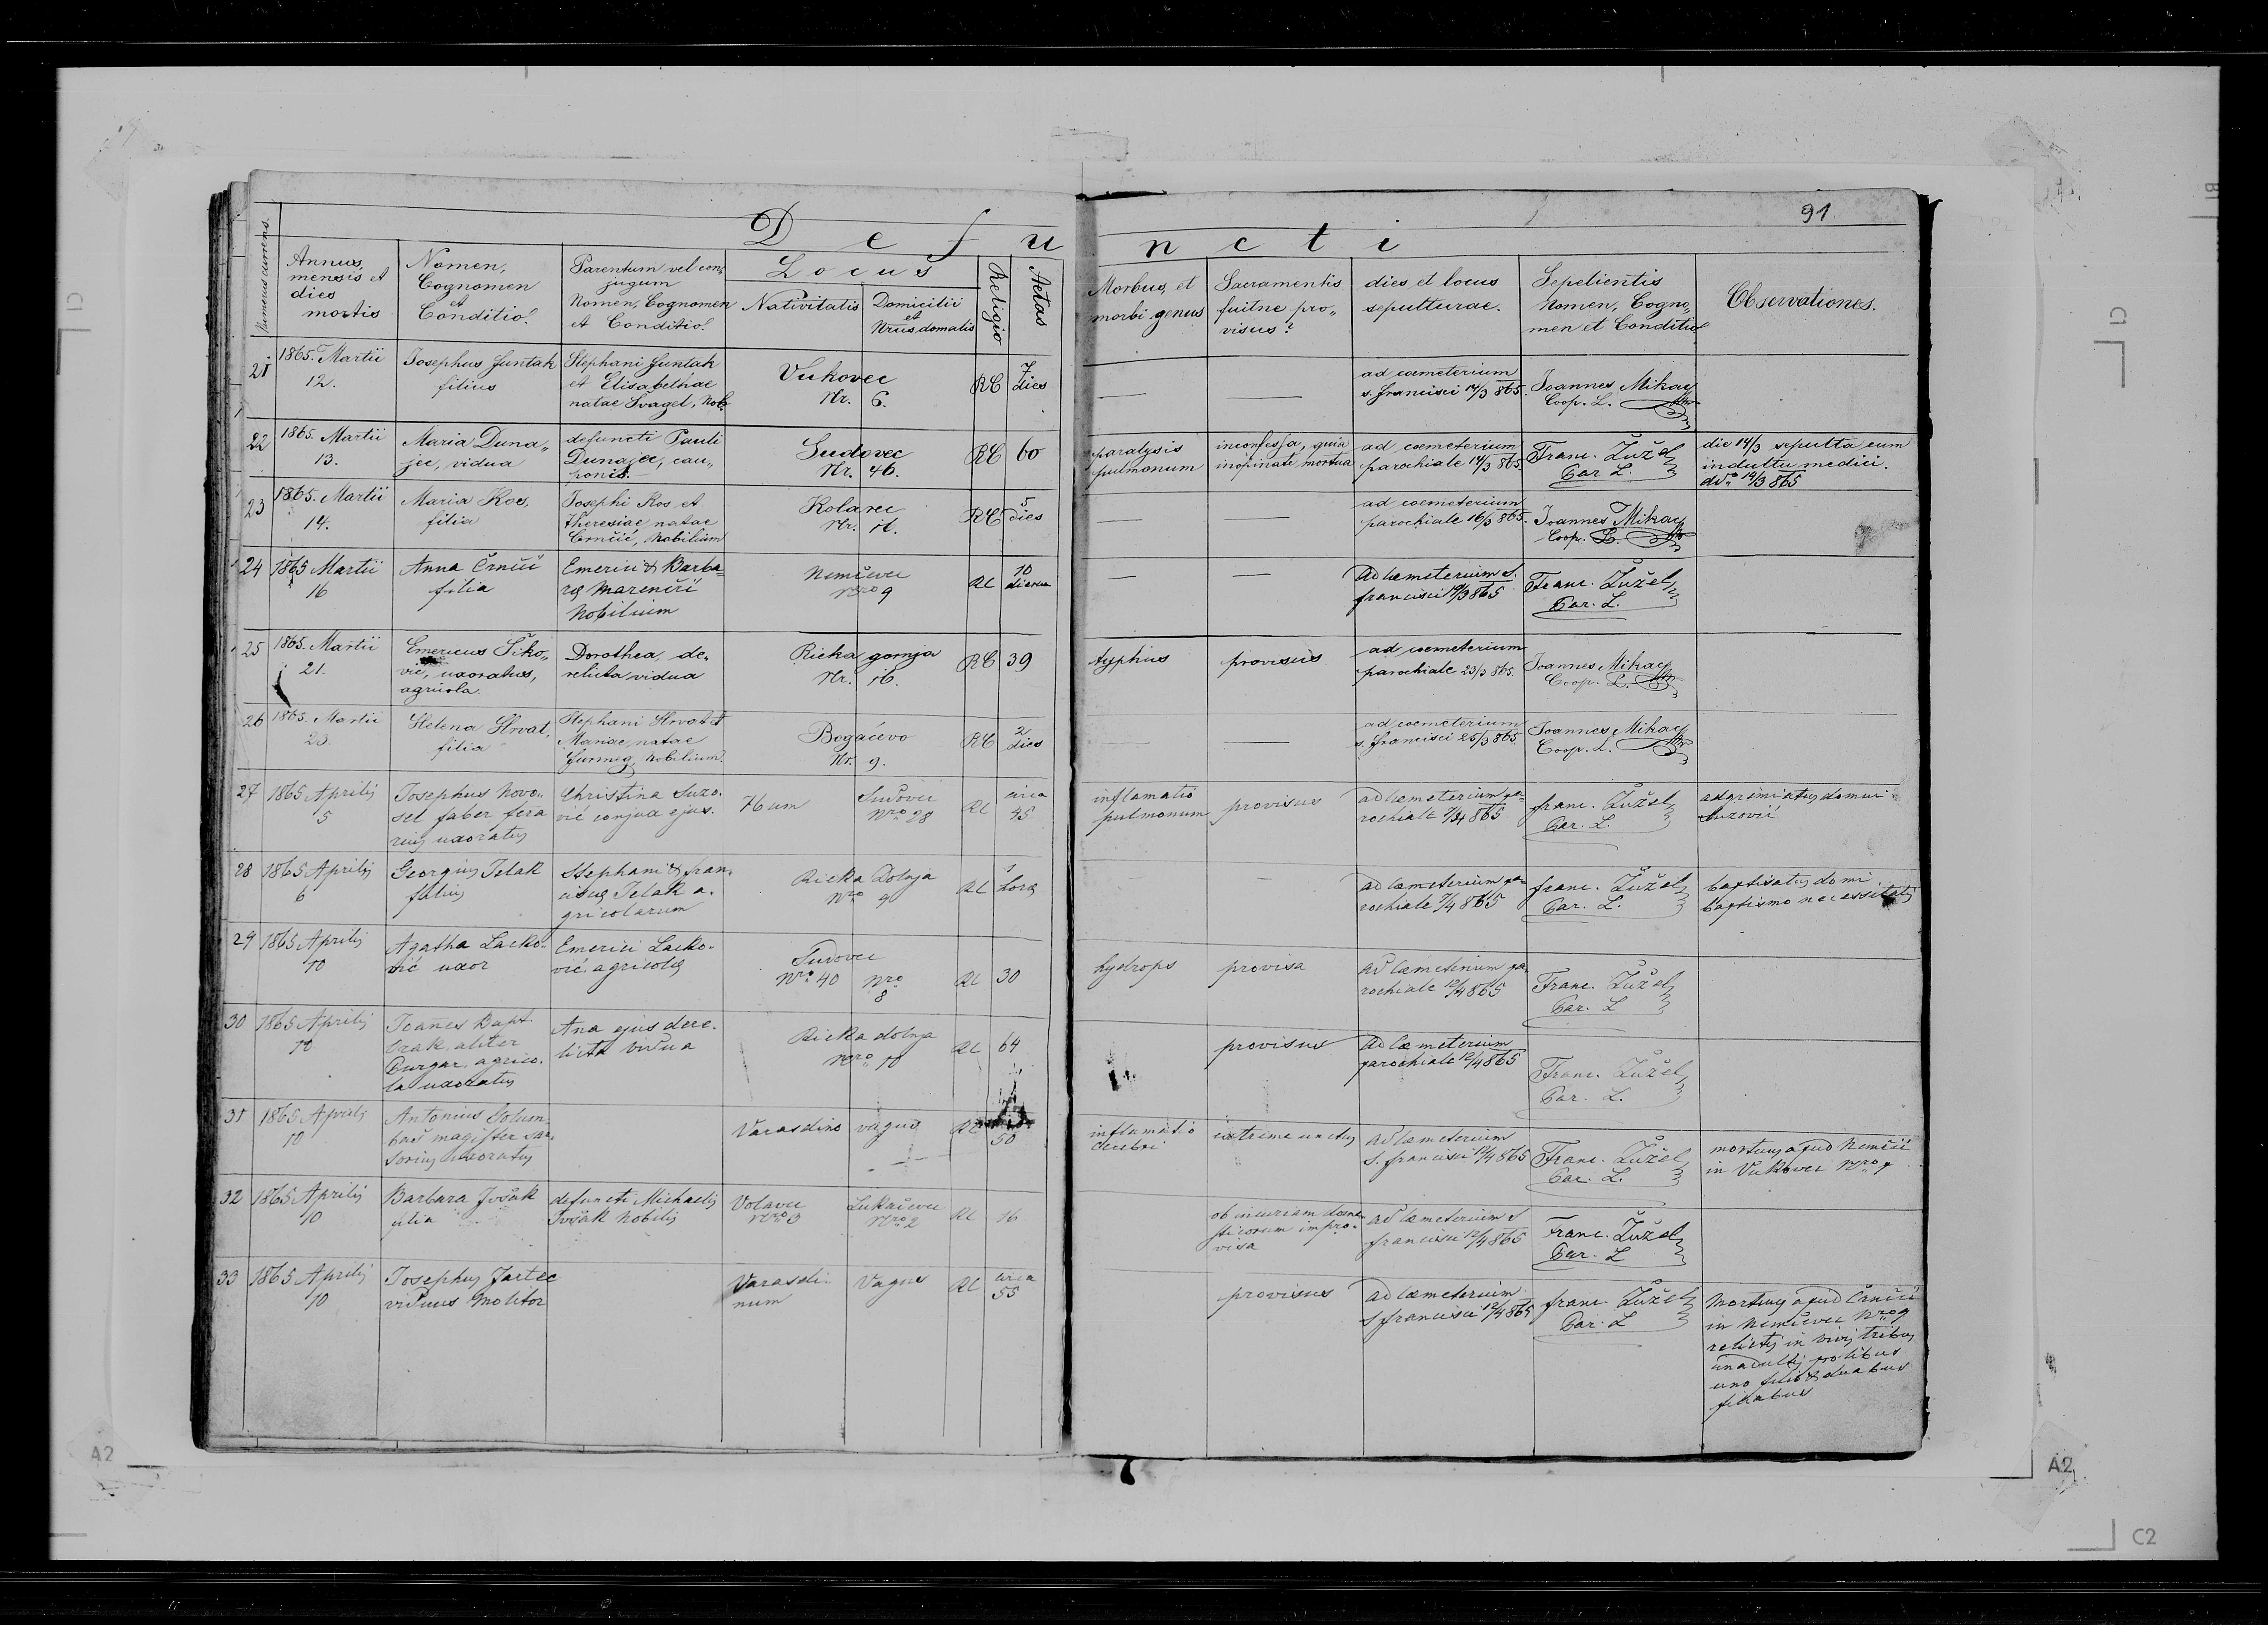 91.
Defuncti
Numerus currens.
Annus,
mensis et
dies
mortis
Nomen,
Cognomen
et
Conditio.
Parentum vel con,
jugum
Nomen, Cognomen
et Conditio.
Locus
Nativitatis
Domicilii
et
Nrus domatis
Religio
Aetas
Morbus et
morbi genus
Sacramentis
fuitne pro„
visus?
dies et locus
sepulturae.
Sepelientis
Nomen, Cogno„
men et Conditio
Observationes.
21
1865. Martii
12.
Josephus Juntak
filius
Stephani Juntak
et Elisabethae
natae Svagel, Nob.
Vukovec
Nr. 6.
RC
7
dies
ad coemeterium
s. Francisci 14/3 865.
Joannes Mikac
Coop. L.
22
1865. Martii
13.
Maria Duna„
jec, vidua
defuncti Pauli
Dunajec, cau„
ponis.
Sudovec
Nr. 46.
RC
60
paralysis
pulmonum
inconfessa, quia
inopinate mortua
ad coemeterium
parochiale 14/3 865.
Franc. Žužel
Par. L.
die 14/3 sepulta cum
indultu medici.
ddo 14/3 865
23
1865. Martii
14.
Maria Kos,
filia
Josephi Kos et
Theresiae natae
Černčić, Nobilium
Kolarec
Nr. 11.
RC
5
dies
ad coemeterium
parochiale 16/3 865.
Joannes Mikac
Coop. L.
24
1865 Martii
16
Anna Črnčić
filia
Emerici & Barba-
rę Marenčić
Nobilium
Nemčevec
Nro 9
RC
10
dierum
Ad coemeterium S.
Francisci 17/3 865
Franc. Žužel
Par. L.
25
1865. Martii
21.
Emericus Šiko„
vić, uxoratus,
agricola.
Dorothea, de„
relicta vidua
Rieka gornja
Nr. 16.
RC
39
typhus
provisus
ad coemeterium
parochiale 23/3 865.
Joannes Mikac
Coop. L.
26
1865. Martii
23.
Helena Hrvat,
filia
Stephani Hrvat et
Mariae, natae
Nobilium.
Bogačevo
Nr. 9.
RC
2
dies
ad coemeterium
s. Francisci 25/3 865.
Joannes Mikac
Coop. L.
27
1865 Aprilis
5
Josephus Novo-
sel faber fera
rius uxoratus
Christina Suzo-
vić conjux ejus.
Hum
Sudovec
Nro 28
RC
circa
45
inflamatio
pulmonum
provisus
ad coemeterium pa-
rochiale 7/4 865
Franc. Žužel
Par. L.
adgremiatus domui
Suzović
28
1865 Aprilis
6
Georgius Jelak
filius
Stephani & Fran-
ciscę Jelak a-
gricolarum
Rieka Dolnja
Nro 9
RC
1
horę
ad coemeterium pa-
rochiale 7/4 865
Franc. Žužel
Par. L.
baptisatus domi
baptismo necessitatis
29
1865 Aprilis
10
Agatha Lacko-
vić uxor
Emerici Lacko-
vić, agricolę
Sudovec
Nro 40
Nro
8
RC
30
hydrops
provisa
ad coemeterium pa-
rochiale 12/4 865
Franc. Žužel
Par. L
30
1865 Aprilis
10
Joanes Bapt.
aliter
agrico-
la uxoratus
Ana ejus dere-
licta vidua
Rieka dolnja
Nro 10
RC
64
provisus
Ad coemeterium
parochiale 12/4 865
Franc. Žužel
Par. L.
31
1865 Aprilis
10
Antonius Golum-
baš magister sar-
torius uxoratus
Varasdino
vagus
RC
50
inflamatio
cerebri
extreme unctus
Ad coemeterium
S. Francisci 12/4 865
Franc. Žužel
Par. L.
mortuus apud Nemčić
in Vukovec Nro 7
32
1865 Aprilis
10
Barbara Ivšak
filia
defuncti Michaelis
Ivšak Nobilis
Volavec
Nro 3
Lukačevec
Nro 2
RC
16
ob incuriam dome-
sticorum impro-
visa
Ad coemeterium S
Francisci 12/4 865
Franc. Žužel
Par. L
33
1865 Aprilis
10
Josephus Jartec
viduus Molitor
Varasdi-
num
Vagus
RC
circa
55
provisus
ad coemeterium
S Francisci 12/4 865
Franc. Žužel
Par. L
Mortuus apud Črnčić
in Nemčevec Nro 9
relictis in vivis tribus
inadultis prolibus
uno filio & duabus
filiabus
C1
C1
A2
A2
C2